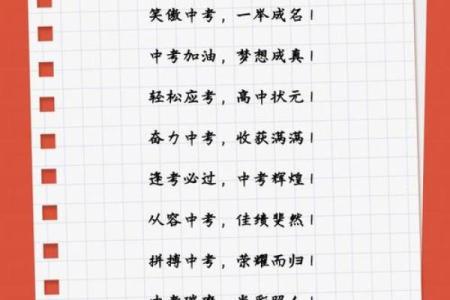 笑傲中考，一举成名！
中考加油，梦想成真！
轻松应考，高中状元！
奋力中考，收获满满！
逢考必过，中考辉煌！
从容中考，佳绩斐然！
拼搏中考，荣耀而归！